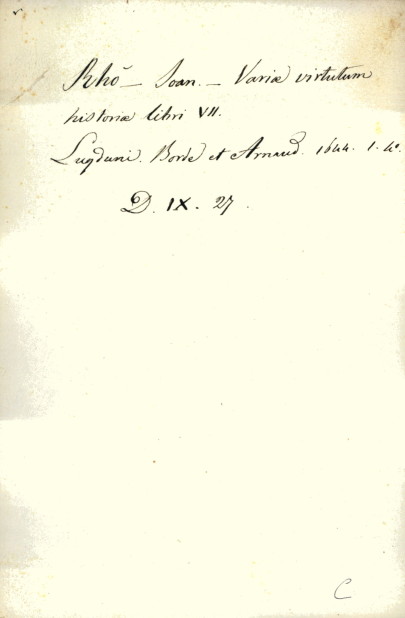 Rhō – Ioan. – Variæ virtutum
historiæ libri VII.
Lugduni. Borde et Arnaud. 1644. 1. 4°.
D. IX. 27.
C